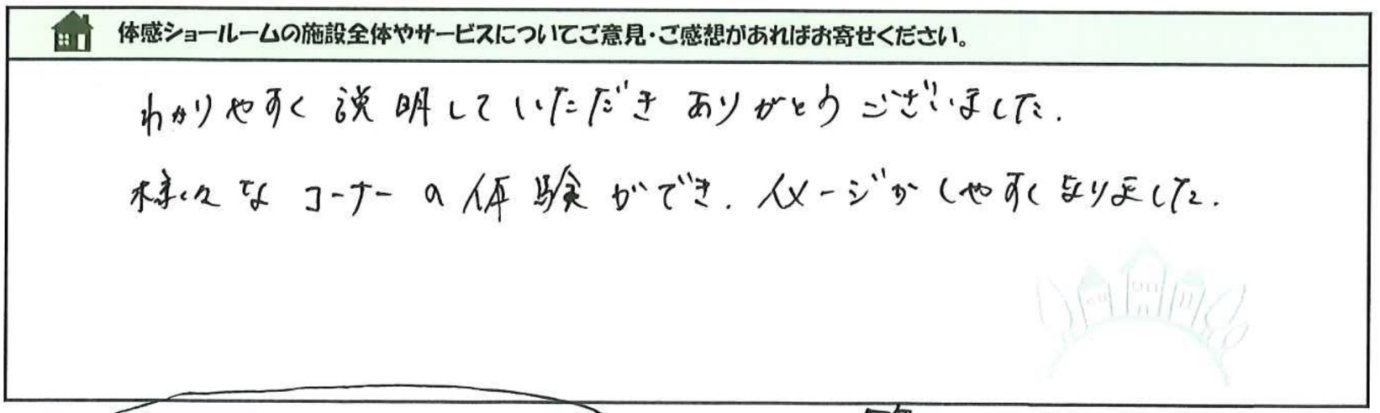 体感ショールームの施設全体やサービスについてご意見・ご感想があればお寄せください。
わかりやすく説明していただきありがとうございました.
様々なコーナーの体験ができ.イメージがしやすくなりました.